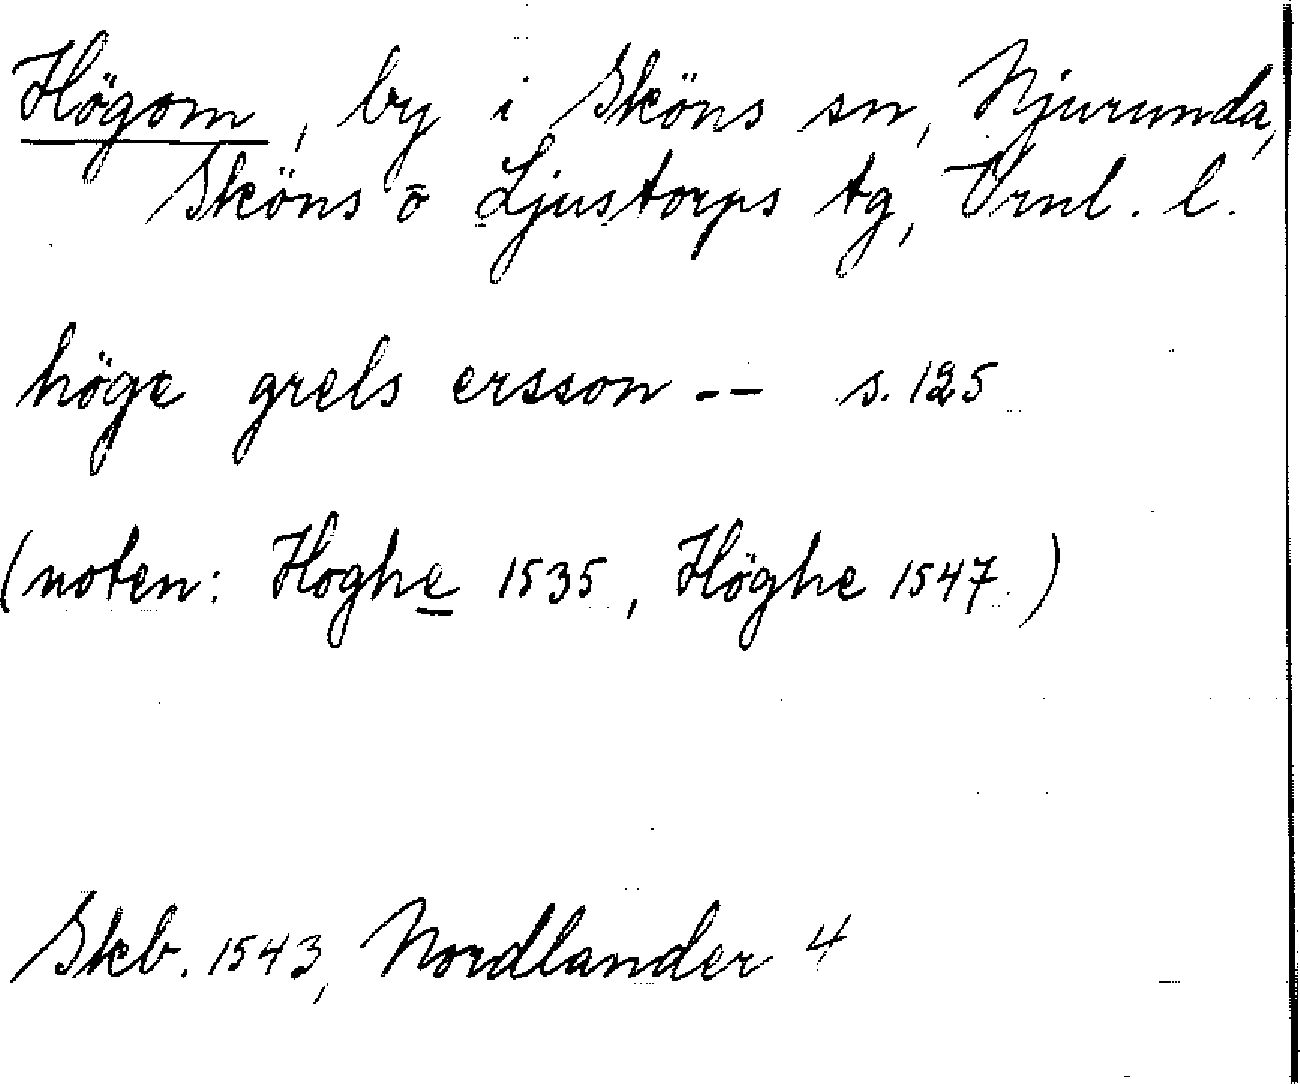 Högom, by i Sköns sn, Njurunda,
Sköns o Ljustorps tg, Vrnl. l.
höge grels ersson -- s. 125
(noten: Hoghe 1535, Höghe 1547.)
Skb. 1543, Nordlander 4